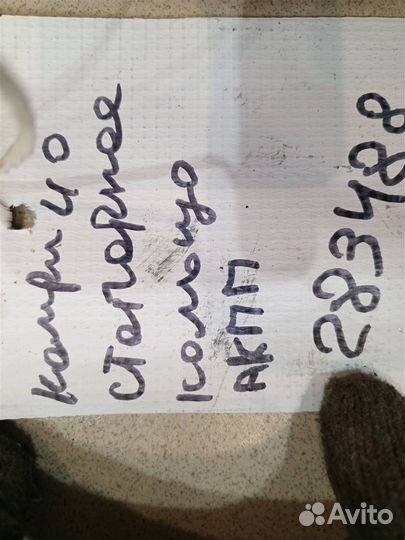 камри 40
стопорнае
кольцо
АКПП
283488
Avito